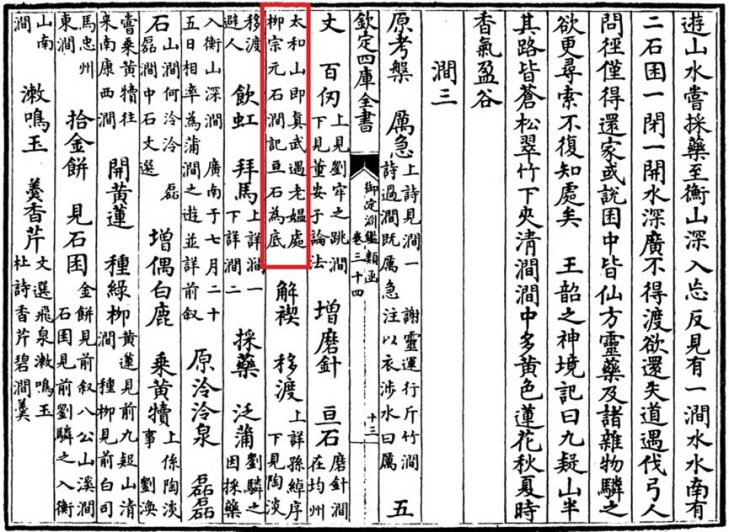 遊山水嘗採藥至衡山深入忘反見有一澗水水南有
二石囷一閉一開水深廣不得渡欲還失道遇伐弓人
問徑僅得還家或說囷中皆仙方靈藥及諸雜物驎之
欲更尋索不復知處矣 王韶之神境記曰九疑山半
其路皆蒼松翠竹下夾清澗澗中多黃色蓮花秋夏時
香氣盈谷
澗三
原考槃 厲急 上詩見澗一 謝靈運行斤竹澗詩過澗既厲急注以衣涉水曰厲 五
欽定四庫全書 御定淵鑑類函 卷三十四 十三
丈 百仞 上見劉牢之跳澗下見董安于論法 增磨針 亘石 磨針澗在均州
太和山即真武遇老媼處柳宗元石澗記亘石為底 解禊 移渡 上詳孫綽序下見陶淡
移渡避人 飲虹 拜馬 上詳澗一下詳澗二 採藥 泛蒲 劉驎之因採藥
入衡山深澗 廣南于七月二十五日相率為蒲澗之遊並詳前叙 原泠泠泉 磊磊
石 山澗何泠泠 磊磊澗中石文選 增偶白鹿 乘黃犢 上係陶淡事 劉渙
嘗乘黃犢往來南康西澗 開黃蓮 種綠柳 黃蓮見前九疑山清澗 種柳見前白司
馬忠州東澗 拾金餅 見石囷 金餅見前叙八公山溪澗石囷見前劉驎之入衡
山南澗 漱鳴玉 羹香芹 文選飛泉漱鳴玉杜詩香芹碧澗羹